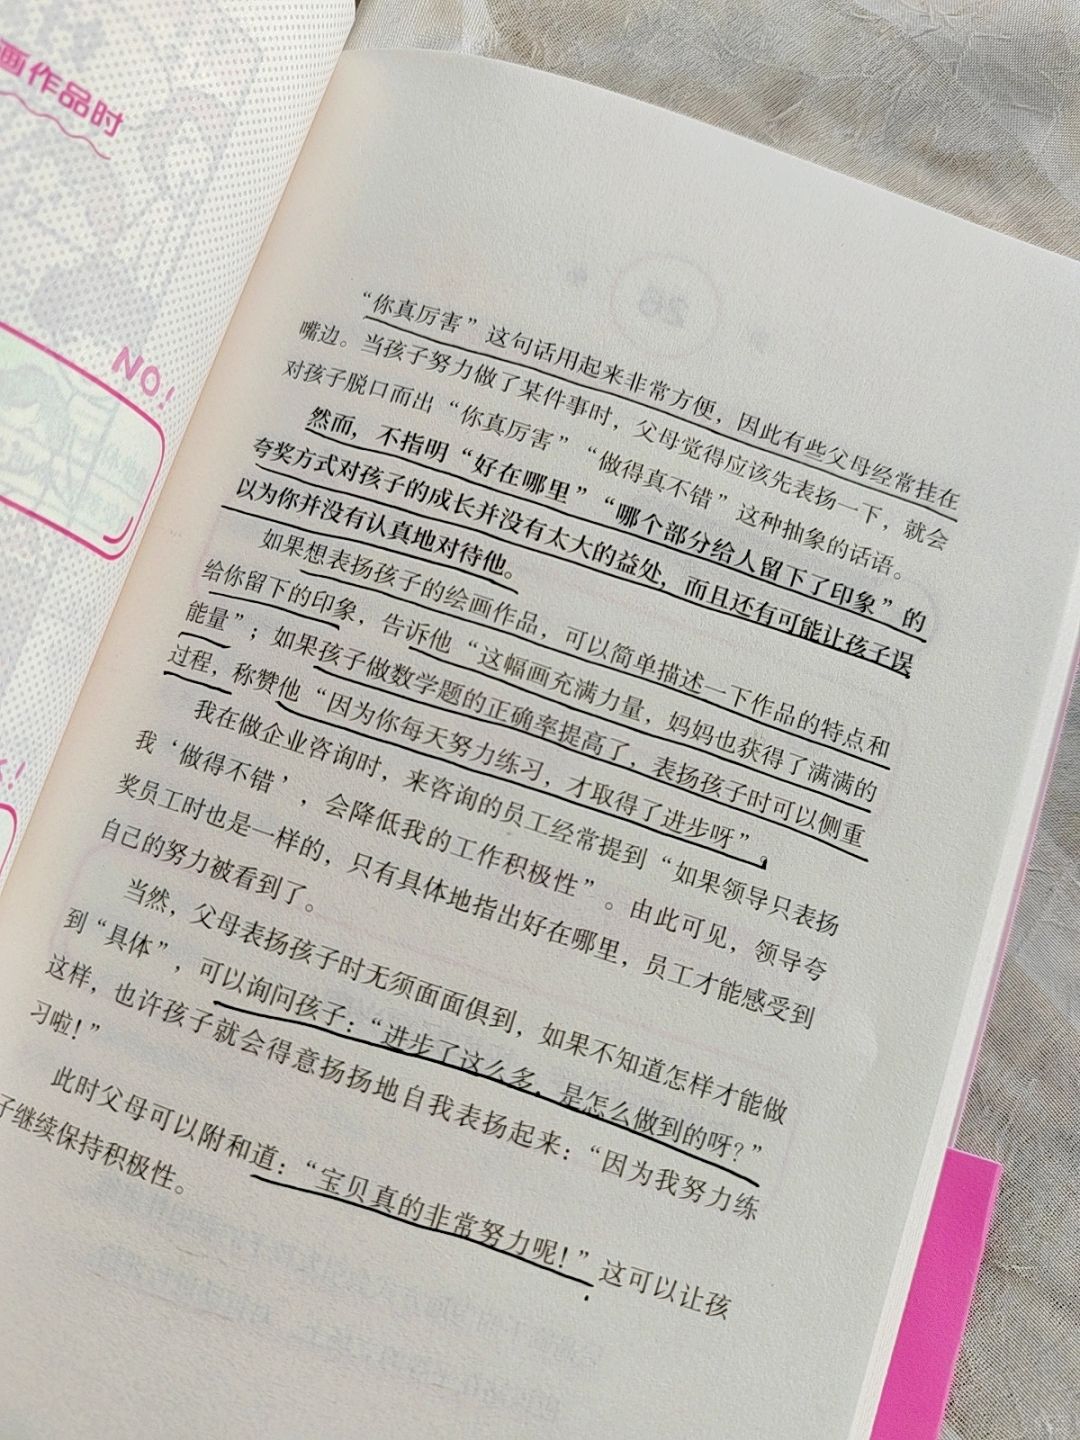 画作品时
NO!
“你真厉害”这句话用起来非常方便，因此有些父母经常挂在
嘴边。当孩子努力做了某件事时，父母觉得应该先表扬一下，就会
对孩子脱口而出“你真厉害”“做得真不错”这种抽象的话语。
然而，不指明“好在哪里”“哪个部分给人留下了印象”的
夸奖方式对孩子的成长并没有太大的益处，而且还有可能让孩子误
以为你并没有认真地对待他。
如果想表扬孩子的绘画作品，可以简单描述一下作品的特点和
给你留下的印象，告诉他“这幅画充满力量，妈妈也获得了满满的
能量”；如果孩子做数学题的正确率提高了，表扬孩子时可以侧重
过程，称赞他“因为你每天努力练习，才取得了进步呀”。
我在做企业咨询时，来咨询的员工经常提到“如果领导只表扬
我‘做得不错’，会降低我的工作积极性”。由此可见，领导夸
奖员工时也是一样的，只有具体地指出好在哪里，员工才能感受到
自己的努力被看到了。
当然，父母表扬孩子时无须面面俱到，如果不知道怎样才能做
到“具体”，可以询问孩子：“进步了这么多，是怎么做到的呀？”
这样，也许孩子就会得意扬扬地自我表扬起来：“因为我努力练
习啦！”
此时父母可以附和道：“宝贝真的非常努力呢！”这可以让孩
子继续保持积极性。